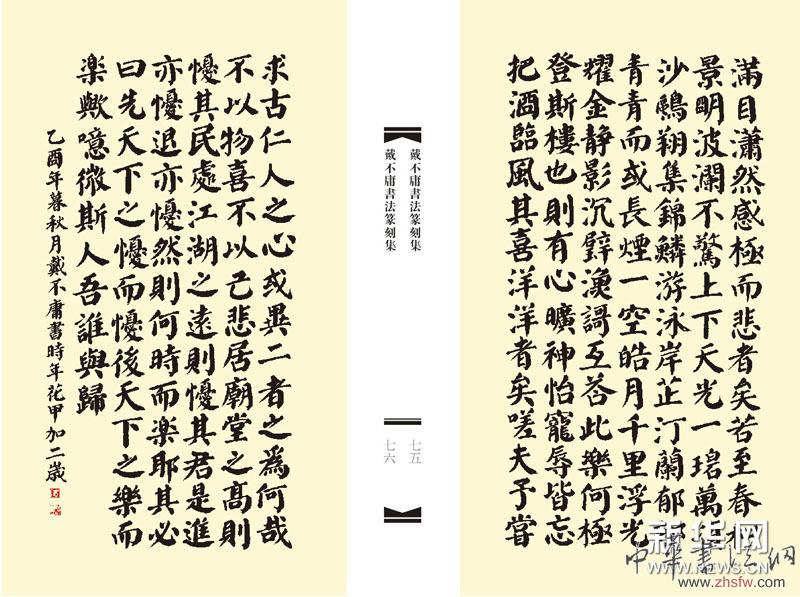 滿目瀟然感極而悲者矣若至春和
景明波瀾不驚上下天光一碧萬
沙鷗翔集錦鱗游泳岸芷汀蘭郁
青青而或長煙一空皓月千里浮光
耀金静影沉璧漁謌互答此樂何極
登斯樓也則有心曠神怡寵辱皆忘
把酒臨風其喜洋洋者矣嗟夫予嘗
戴不庸書法篆刻集
七五
戴不庸書法篆刻集
七六
求古仁人之心或異二者之為何哉
不以物喜不以己悲居廟堂之高則
懮其民處江湖之遠則懮其君是進
亦懮退亦懮然則何時而楽耶其必
曰先天下之懮而懮後天下之樂而
楽歟噫微斯人吾誰與歸
乙酉年暮秋月戴不庸書時年花甲加二歲
新华网
WWW.NEWS.CN
中華書法網
www.zhsfw.com